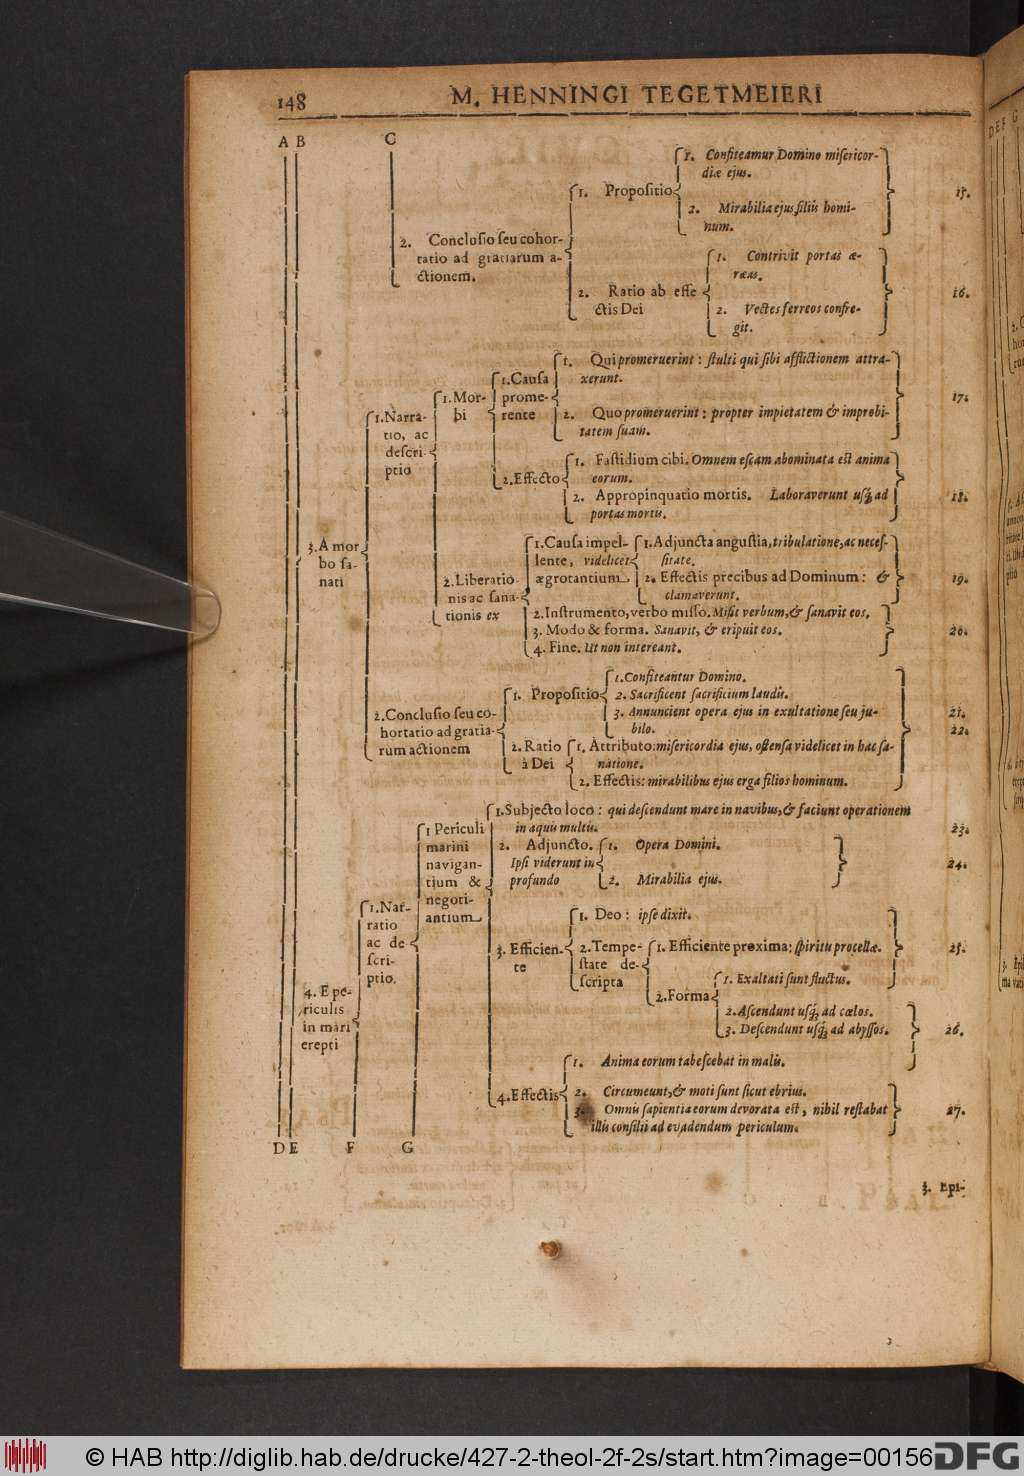 148
M. HENNINGI TEGETMEIERI
A B C
1. Confiteamur Domino misericor-
diæ ejus.
1. Propositio
15.
2. Mirabilia ejus filiis homi-
num.
2. Conclusio seu cohor-
tatio ad gratiarum a-
ctionem.
1. Contrivit portas æ-
reas.
2. Ratio ab effe
ctis Dei
16.
2. Vectes ferreos confre-
git.
1. Qui promeruerint : stulti qui sibi afflictionem attra-
xerunt.
1. Causa
prome-
rente
17.
1. Mor-
bi
2. Quo promeruerint : propter impietatem & improbi-
tatem suam.
1. Narra-
tio, ac
descri-
ptio
1. Fastidium cibi. Omnem escam abominata est anima
eorum.
2. Effecto
2. Appropinquatio mortis. Laboraverunt usq; ad
portas mortis.
18.
3. A mor
bo sa-
nati
1. Causa impel-
lente, videlicet
ægrotantium
1. Adjuncta angustia, tribulatione, ac neces-
sitate.
2. Effectis precibus ad Dominum : &
clamaverunt.
19.
2. Liberatio-
nis ac sana-
tionis ex
2. Instrumento, verbo misso. Misit verbum, & sanavit eos.
3. Modo & forma. Sanavit, & eripuit eos.
20.
4. Fine. Ut non intereant.
1. Confiteantur Domino.
1. Propositio
2. Sacrificent sacrificium laudis.
3. Annuncient opera ejus in exultatione seu ju-
bilo.
21.
22.
2. Conclusio seu co-
hortatio ad gratia-
rum actionem
2. Ratio
à Dei
1. Attributo: misericordia ejus, ostensa videlicet in hac sa-
natione.
2. Effectis: mirabilibus ejus erga filios hominum.
1. Subjecto loco : qui descendunt mare in navibus, & faciunt operationem
in aquis multis.
23.
1 Periculi
marini
navigan-
tium &
negoti-
antium
2. Adjuncto.
Ipsi viderunt in
profundo
1. Opera Domini.
2. Mirabilia ejus.
24.
1. Nar-
ratio
ac de-
scri-
ptio.
1. Deo : ipse dixit.
3. Efficien-
te
2. Tempe-
state de-
scripta
1. Efficiente proxima: spiritus procellæ.
25.
2. Forma
1. Exaltati sunt fluctus.
2. Ascendunt usq; ad cœlos.
3. Descendunt usq; ad abyssos.
26.
4. E pe-
riculis
in mari
erepti
1. Anima eorum tabescebat in malis.
4. Effectis
2. Circumeunt, & moti sunt sicut ebrius.
3. Omnis sapientia eorum devorata est, nihil restabat
illis consilii ad evadendum periculum.
27.
D E F G
3. Epi-
© HAB http://diglib.hab.de/drucke/427-2-theol-2f-2s/start.htm?image=00156
DFG